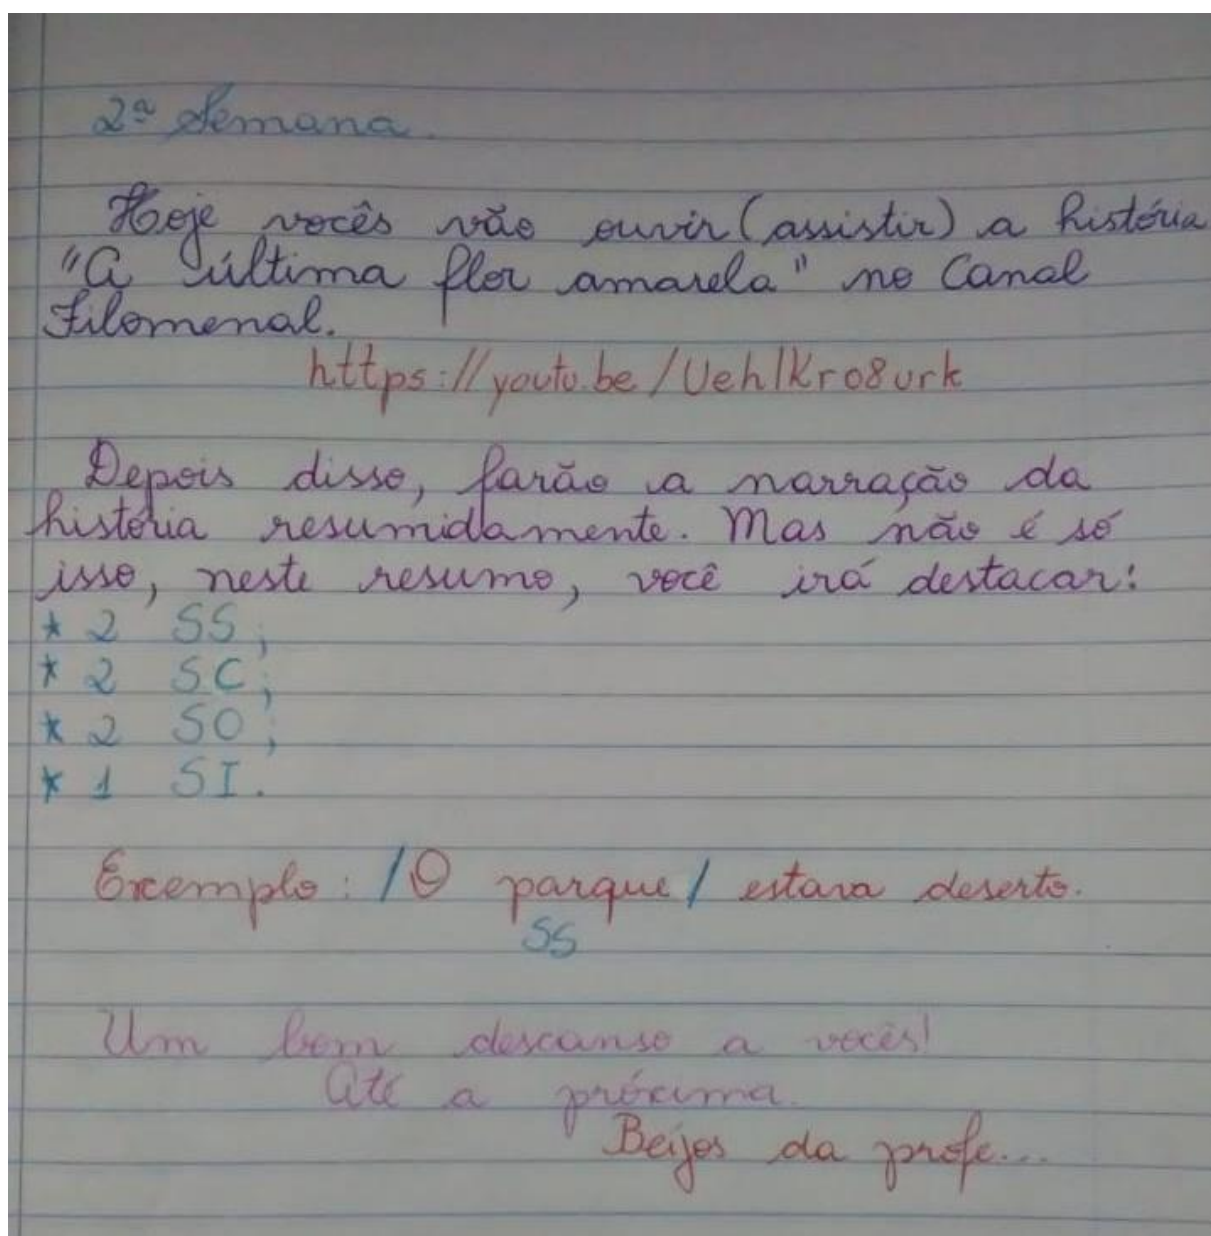 2ª Semana.
Hoje vocês vão ouvir (assistir) a história
"A última flor amarela" no Canal
Filomenal.
https://youtu.be/UehlKro8urk
Depois disso, farão a narração da
história resumidamente. Mas não é só
isso, neste resumo, você irá destacar:
* 2 SS;
* 2 SC;
* 2 SO;
* 1 SI.
Exemplo: /O parque/ estava deserto.
SS
Um bom descanso a vocês!
Até a próxima.
Beijos da profe...